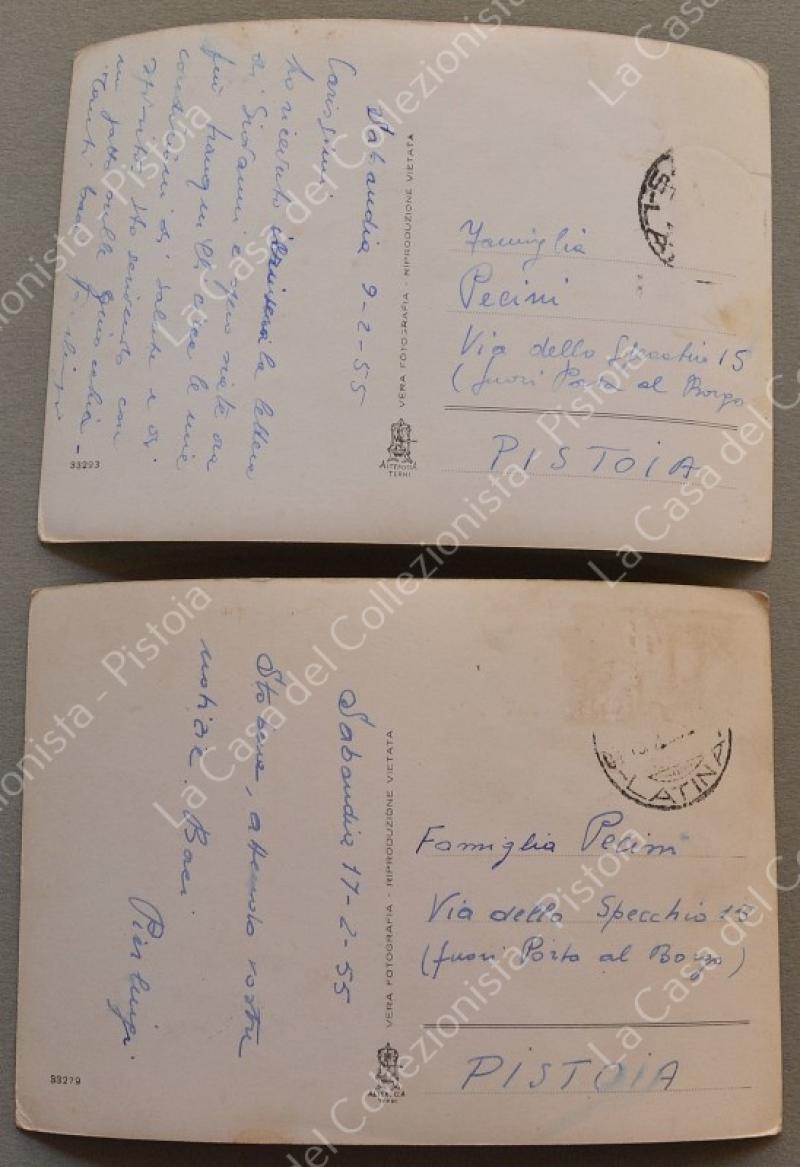 Sabaudia 9-2-55
Carissimi
ho ricevuto la lettera
di Giovanni e ora
più tranquilli circa le mie
condizioni di salute e di
spirito. Sto scrivendo con
un sulle ginocchia -
Tanti baci
33293
VERA FOTOGRAFIA - RIPRODUZIONE VIETATA
ALTEROCCA
TERNI
Famiglia
Pecini
Via dello Specchio 15
(fuori Porta al Borgo
PISTOIA
Sabaudia 17-2-55
Sto bene, attendo vostre
notizie. Baci.
Pierluigi
33279
VERA FOTOGRAFIA - RIPRODUZIONE VIETATA
ALTEROCCA
TERNI
LATINA
Famiglia Pecini
Via dello Specchio 15
(fuori Porta al Borgo)
PISTOIA
La Casa del Collezionista - Pistoia